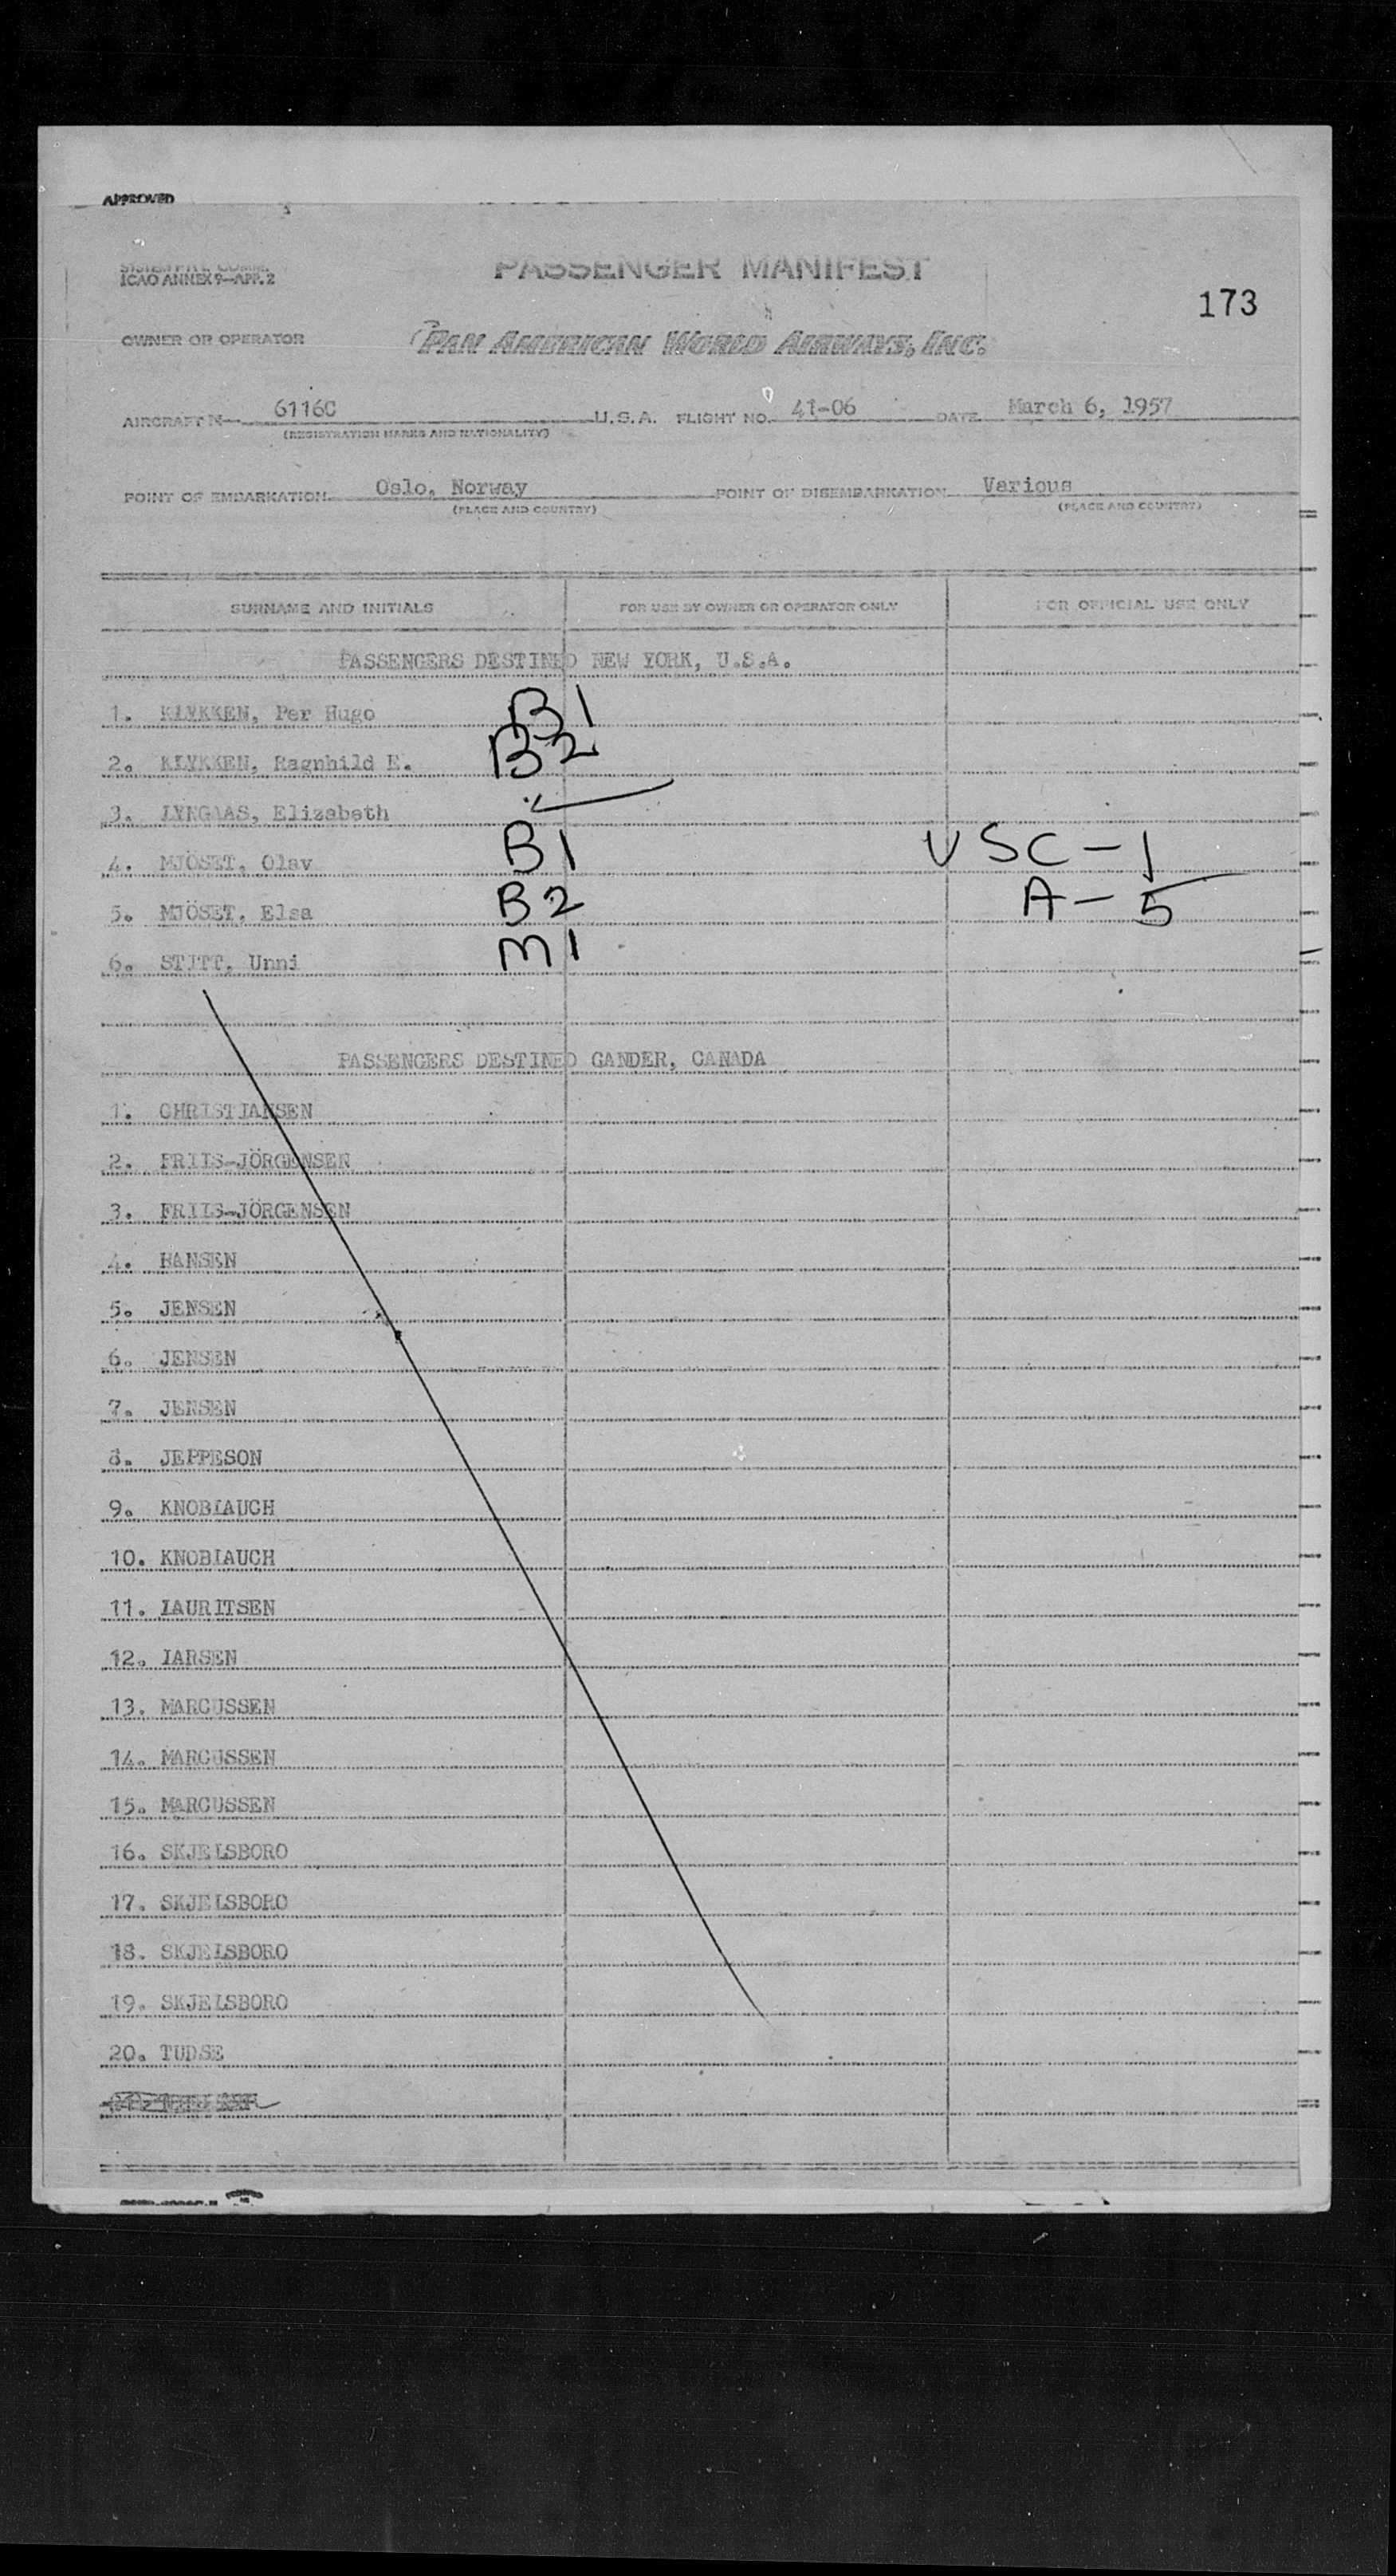 APPROVED
PASSENGER MANIFEST
ICAO ANNEX 9—APP. 2
173
OWNER OR OPERATOR PAN AMERICAN WORLD AIRWAYS, INC.
AIRCRAFT N— 6116C U. S. A. FLIGHT NO. 41-06 DATE March 6, 1957
(REGISTRATION MARKS AND NATIONALITY)
POINT OF EMBARKATION Oslo, Norway POINT OF DISEMBARKATION Various
(PLACE AND COUNTRY) (PLACE AND COUNTRY)
SURNAME AND INITIALS FOR USE BY OWNER OR OPERATOR ONLY FOR OFFICIAL USE ONLY
PASSENGERS DESTINED NEW YORK, U.S.A.
1. KLYKKEN, Per Hugo B1
2. KLYKKEN, Ragnhild E. B2
3. LYNGAAS, Elizabeth
4. MJÖSET, Olav B1 USC-1
5. MJÖSET, Elsa B2 A-5
6. STITT, Unni M1
PASSENGERS DESTINED GANDER, CANADA
1. CHRISTIANSEN
2. FRIIS-JÖRGENSEN
3. FRIIS-JÖRGENSEN
4. HANSEN
5. JENSEN
6. JENSEN
7. JENSEN
8. JEPPESON
9. KNOBLAUCH
10. KNOBLAUCH
11. LAURITSEN
12. LARSEN
13. MARCUSSEN
14. MARCUSSEN
15. MARCUSSEN
16. SKJELSBORO
17. SKJELSBORO
18. SKJELSBORO
19. SKJELSBORO
20. TUDSE